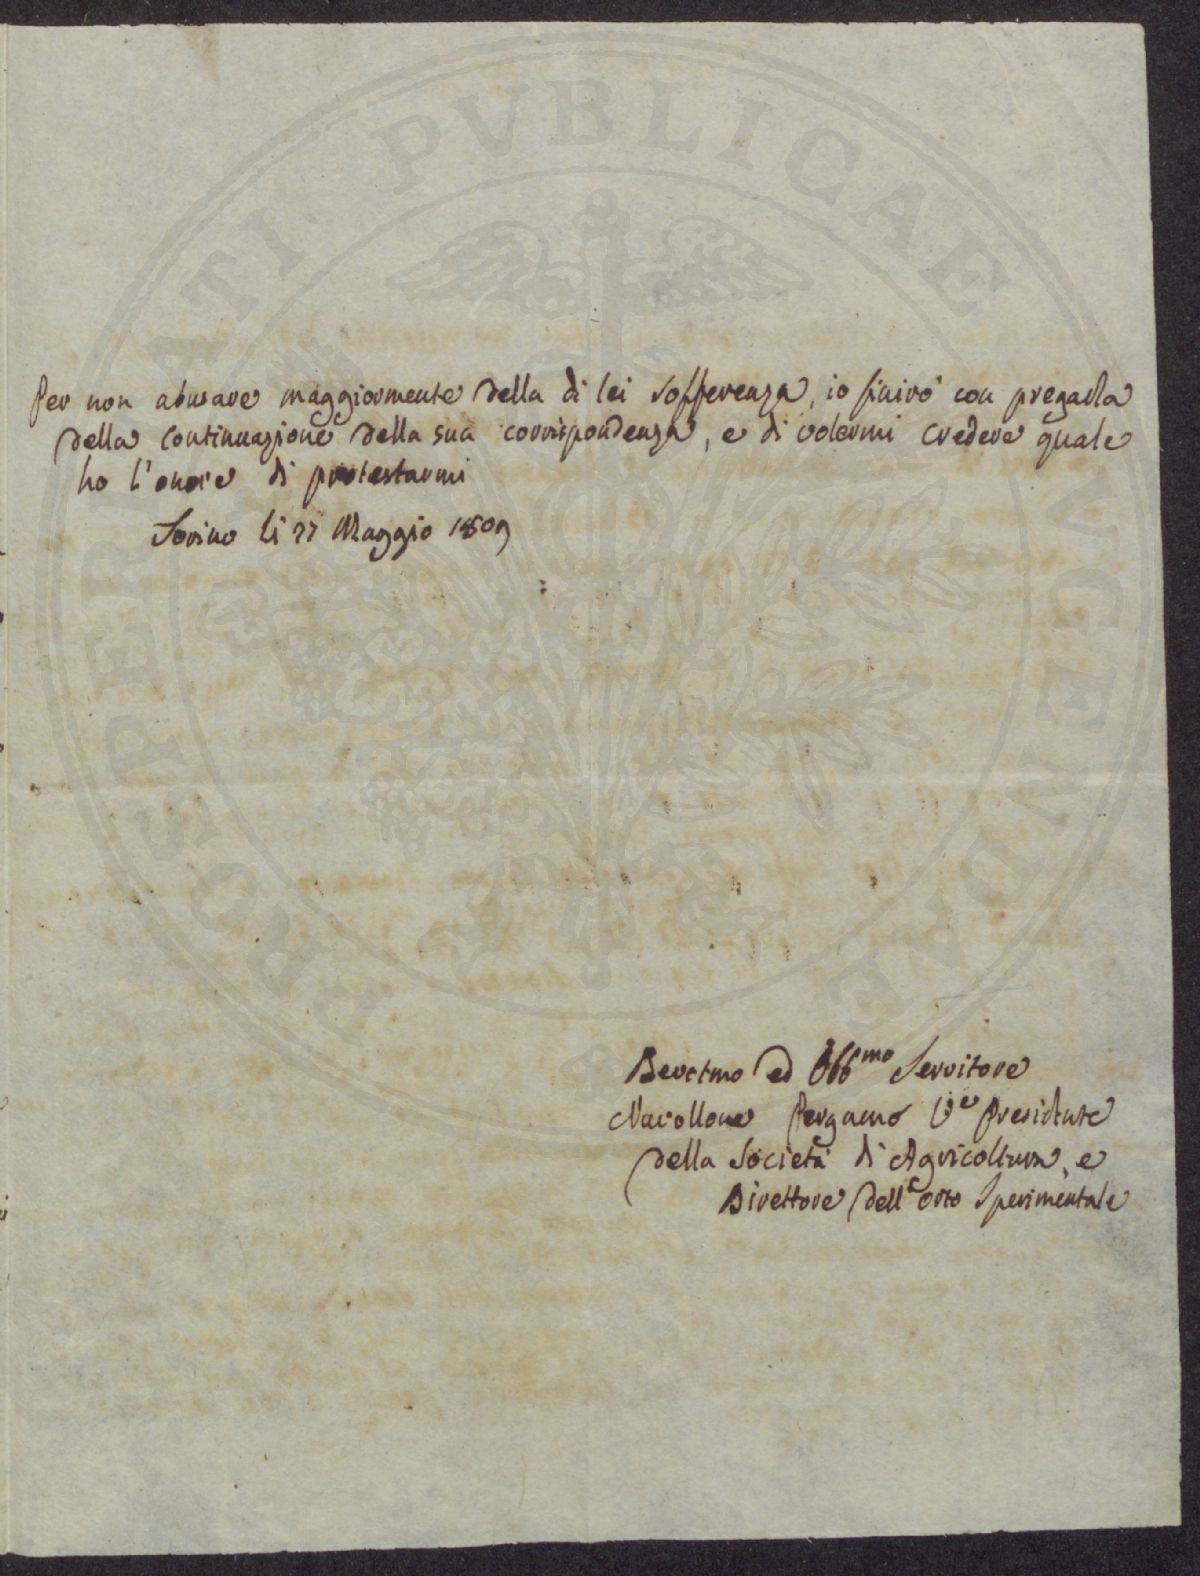 PROSPERITATI PVBLICAE AVGENDAE
Per non abusare maggiormente della di lei sofferenza, io finirò con pregarla
della continuazione della sua corrispondenza, e di volermi credere quale
ho l'onore di protestarmi
Torino li 27 Maggio 1809
Devotmo ed Obbmo Servitore
Nuvollone Pergamo Ve Presidente
della Società di Agricoltura, e
Direttore dell'orto Sperimentale